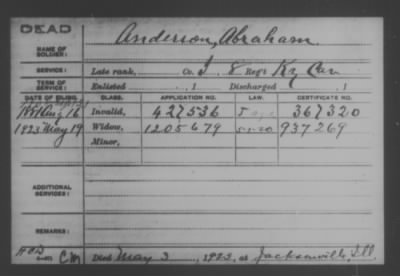 DEAD
NAME OF SOLDIER: Anderson, Abraham.
SERVICE: Late rank, Co. I 8 Reg't Ky Cav
TERM OF SERVICE: Enlisted , 1 Discharged , 1
DATE OF FILING. CLASS. APPLICATION NO. LAW. CERTIFICATE NO.
Aug 16 Invalid, 427536 367320
1923 May 19 Widow, 1205679 5-1-20 937269
Minor,
ADDITIONAL SERVICES:
REMARKS:
Died May 3, 1923, at Jacksonville, Ill.